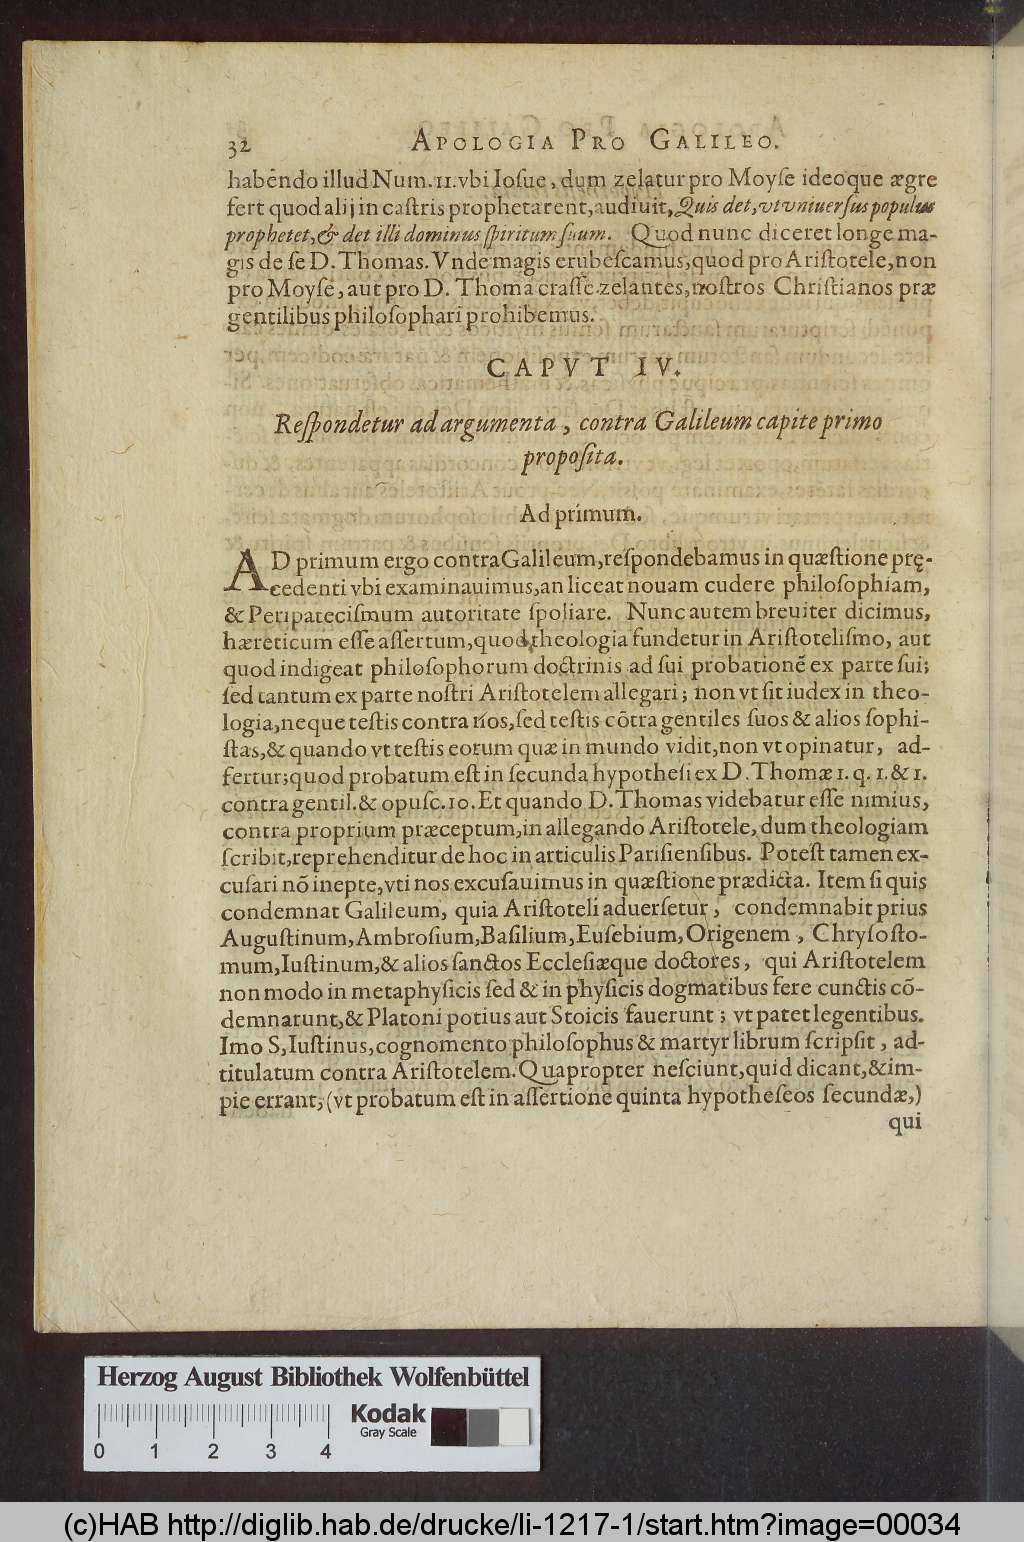 32 APOLOGIA PRO GALILEO.
habēndo illud Num. 11. vbi Iosue, dum zelatur pro Moyſe ideoque ægre
fert quod alij in caſtris prophetarent, audiuit, Quis det, vt vniuerſus populus
prophetet, & det illi dominus ſpiritum ſuum. Quod nunc diceret longe ma-
gis de ſe D. Thomas. Vnde magis erubeſcamus, quod pro Ariſtotele, non
pro Moyſe, aut pro D. Thoma craſſe zelantes, noſtros Chriſtianos præ
gentilibus philoſophari prohibemus.
CAPVT IV.
Reſpondetur ad argumenta, contra Galileum capite primo
propoſita.
Ad primum.
AD primum ergo contra Galileum, reſpondebamus in quæſtione prę-
cedenti vbi examinauimus, an liceat nouam cudere philoſophiam,
& Peripateciſmum autoritate ſpoliare. Nunc autem breuiter dicimus,
hæreticum eſſe aſſertum, quod theologia fundetur in Ariſtoteliſmo, aut
quod indigeat philoſophorum doctrinis ad ſui probationē ex parte ſui;
ſed tantum ex parte noſtri Ariſtotelem allegari; non vt ſit iudex in theo-
logia, neque teſtis contra nos, ſed teſtis cōtra gentiles ſuos & alios ſophi-
ſtas, & quando vt teſtis eorum quæ in mundo vidit, non vt opinatur, ad-
fertur; quod probatum eſt in ſecunda hypotheſi ex D. Thomæ 1. q. 1. & 1.
contra gentil. & opuſc. 10. Et quando D. Thomas videbatur eſſe nimius,
contra proprium præceptum, in allegando Ariſtotele, dum theologiam
ſcribit, reprehenditur de hoc in articulis Pariſienſibus. Poteſt tamen ex-
cuſari nō inepte, vti nos excuſauimus in quæſtione prædicta. Item ſi quis
condemnat Galileum, quia Ariſtoteli aduerſetur, condemnabit prius
Auguſtinum, Ambroſium, Baſilium, Euſebium, Origenem, Chryſoſto-
mum, Iuſtinum, & alios ſanctos Eccleſiæque doctores, qui Ariſtotelem
non modo in metaphyſicis ſed & in phyſicis dogmatibus fere cunctis cō-
demnarunt, & Platoni potius aut Stoicis fauerunt; vt patet legentibus.
Imo S, Iuſtinus, cognomento philoſophus & martyr librum ſcripſit, ad-
titulatum contra Ariſtotelem. Quapropter neſciunt, quid dicant, & im-
pie errant, (vt probatum eſt in aſſertione quinta hypotheſeos ſecundæ,)
qui
Herzog August Bibliothek Wolfenbüttel
Kodak
Gray Scale
0 1 2 3 4
(c)HAB http://diglib.hab.de/drucke/li-1217-1/start.htm?image=00034